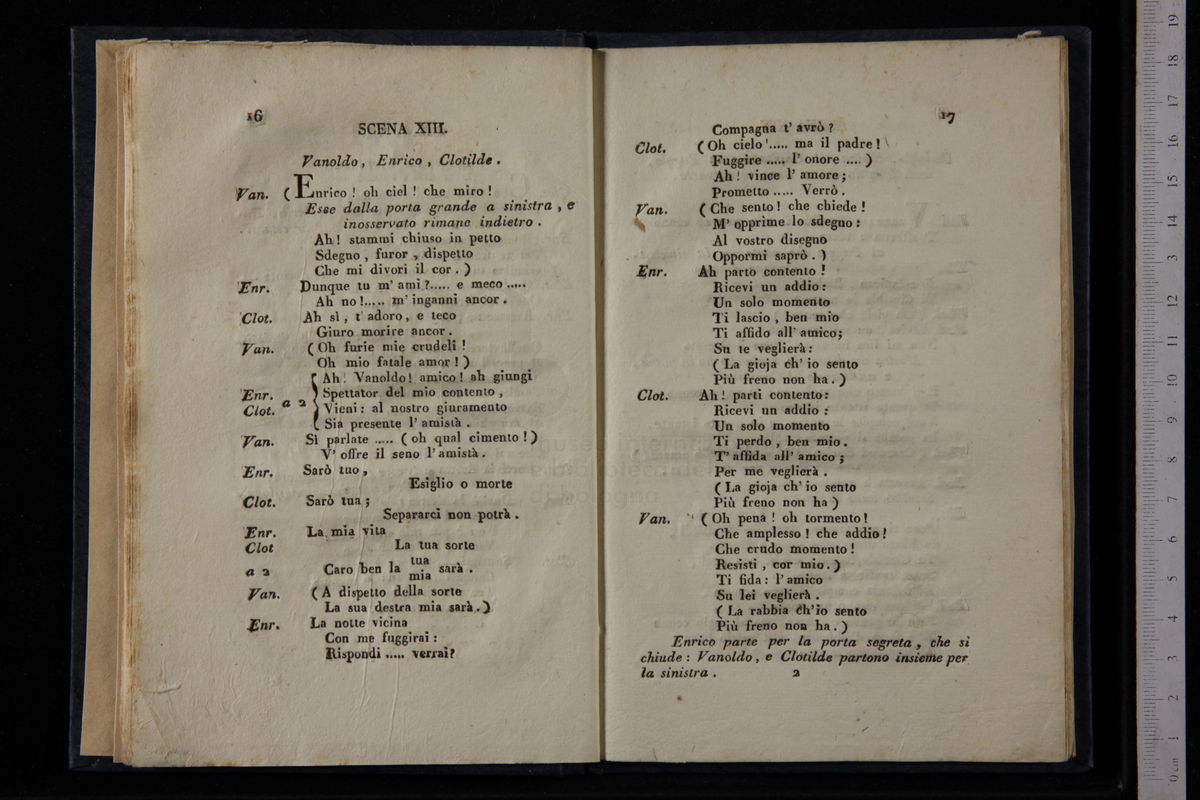 16
SCENA XIII.
Vanoldo, Enrico, Clotilde.
Van. (Enrico! oh ciel! che miro!
Esce dalla porta grande a sinistra, e
inosservato rimane indietro.
Ah! stammi chiuso in petto
Sdegno, furor, dispetto
Che mi divori il cor.)
Enr. Dunque tu m' ami?..... e meco .....
Ah no!..... m' inganni ancor.
Clot. Ah sì, t' adoro, e teco
Giuro morire ancor.
Van. (Oh furie mie crudeli!
Oh mio fatale amor!)
Ah! Vanoldo! amico! ah giungi
Enr. Spettator del mio contento,
Clot. a 2 Vieni: al nostro giuramento
Sia presente l' amistà.
Van. Sì parlate ..... (oh qual cimento!)
V' offre il seno l' amistà.
Enr. Sarò tuo,
Esiglio o morte
Clot. Sarò tua;
Separarci non potrà.
Enr. La mia vita
Clot La tua sorte
a 2 Caro ben la tua mia sarà.
Van. (A dispetto della sorte
La sua destra mia sarà.)
Enr. La notte vicina
Con me fuggirai:
Rispondi ..... verrai?
17
Compagna t' avrò?
Clot. (Oh cielo'..... ma il padre!
Fuggire ..... l' onore ....)
Ah! vince l' amore;
Prometto ..... Verrò.
Van. (Che sento! che chiede!
M' opprime lo sdegno:
Al vostro disegno
Oppormi saprò.)
Enr. Ah parto contento!
Ricevi un addio:
Un solo momento
Ti lascio, ben mio
Ti affido all' amico;
Su te veglierà:
(La gioja ch' io sento
Più freno non ha.)
Clot. Ah! parti contento:
Ricevi un addio:
Un solo momento
Ti perdo, ben mio.
T' affida all' amico;
Per me veglierà.
(La gioja ch' io sento
Più freno non ha)
Van. (Oh pena! oh tormento!
Che amplesso! che addio!
Che crudo momento!
Resisti, cor mio.)
Ti fida: l' amico
Su lei veglierà.
(La rabbia ch'io sento
Più freno non ha.)
Enrico parte per la porta segreta, che si
chiude: Vanoldo, e Clotilde partono insieme per
la sinistra. 2
0 cm 1 2 3 4 5 6 7 8 9 10 11 12 13 14 15 16 17 18 19